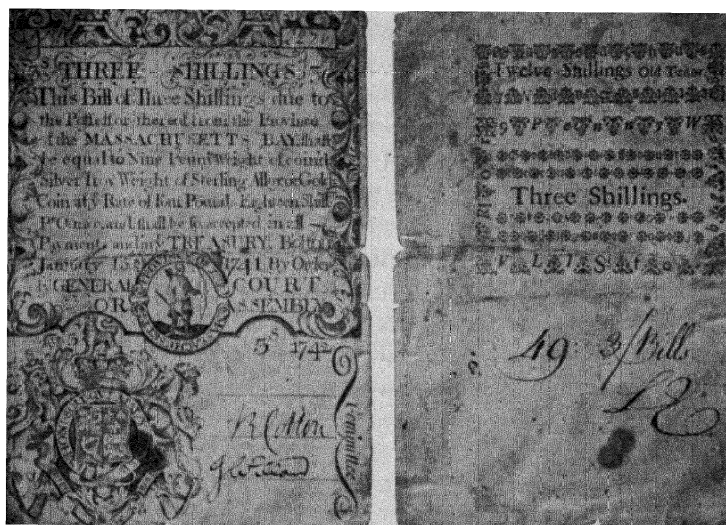 THREE SHILLINGS
This Bill of Three Shillings due to
the Possessor thereof from the Province
of the MASSACHUSETTS BAY shall
be equal to Nine Penny Weight of coind
Silver Troy Weight of Sterling Alloy or Gold
Coin at y Rate of Four Pound Eighteen Shill
P Ounce and shall be so accepted in all
Payments and in y TREASURY. Boston
January 15 1741. By Order
GENERAL COURT
OR ASSEMBLY
5s 174
R Cotton
Committee
Twelve Shillings Old Tenor.
9 P e n n y W
Three Shillings.
49 3/ Bills